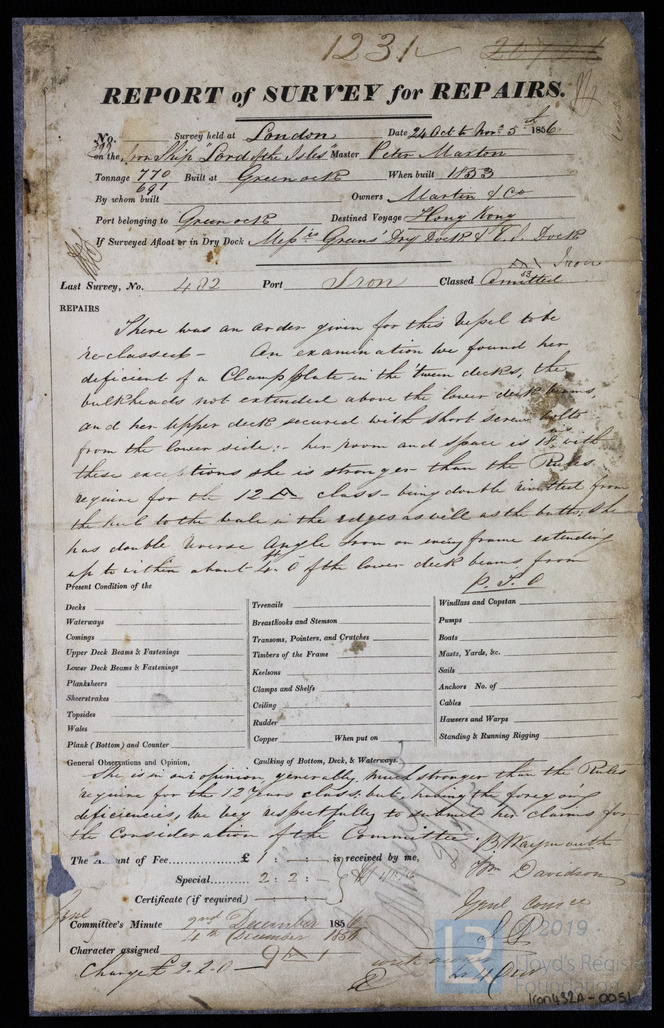 1231
REPORT of SURVEY for REPAIRS.
No. Survey held at London Date 24 Oct to Novr 5th 1856
on the Iron Ship "Lord of the Isles" Master Peter Maxton
Tonnage 770 Built at Greenock When built 1853
691
By whom built Owners Martin & Co
Port belonging to Greenock Destined Voyage Hong Kong
If Surveyed Afloat or in Dry Dock Messrs Greens' Dry Dock & E. I. Dock
Iron
Last Survey, No. 482 Port Iron Classed A1
53. Omitted
REPAIRS
There was an order given for this Vessel to be
re-classed - On examination we found her
deficient of a Clamp plate in the 'tween decks, the
bulkheads not extended above the lower deck beams,
and her upper deck secured with short screw bolts
from the lower side; - her room and space is 18 ins with
these exceptions she is stronger than the Rules
require for the 12 A class - being double rivetted from
the keel to the in the edges as well as the butts, she
has double reverse Angle Iron on every frame extending
up to within about 4ft 0 of the lower deck beams from
P. T. O
Present Condition of the
Decks
Waterways
Comings
Upper Deck Beams & Fastenings
Lower Deck Beams & Fastenings
Planksheers
Sheerstrakes
Topsides
Wales
Plank (Bottom) and Counter
Treenails
Breasthooks and Stemson
Transoms, Pointers, and Crutches
Timbers of the Frame
Keelsons
Clamps and Shelfs
Ceiling
Rudder
Copper When put on
Caulking of Bottom, Deck, & Waterways.
Windlass and Capstan
Pumps
Boats
Masts, Yards, &c.
Sails
Anchors No. of
Cables
Hawsers and Warps
Standing & Running Rigging
General Observations and Opinion,
She is in our opinion, generally, much stronger than the Rules
require for the 12 Years class; but, having the foregoing
deficiencies, We beg respectfully to submit her claims for
the Consideration of the Committee.
B. Waymouth
Wm Davidson
The Amount of Fee £ 1 : - : - is received by me,
Special 2 : 2 : -
Certificate (if required) : :
Committee's Minute 2nd December 1856
4th December 1856
Character assigned 9 A 1
Charge £ 2-2-0
© 2019
Lloyd's Register
Foundation
Iron 432A - 0051